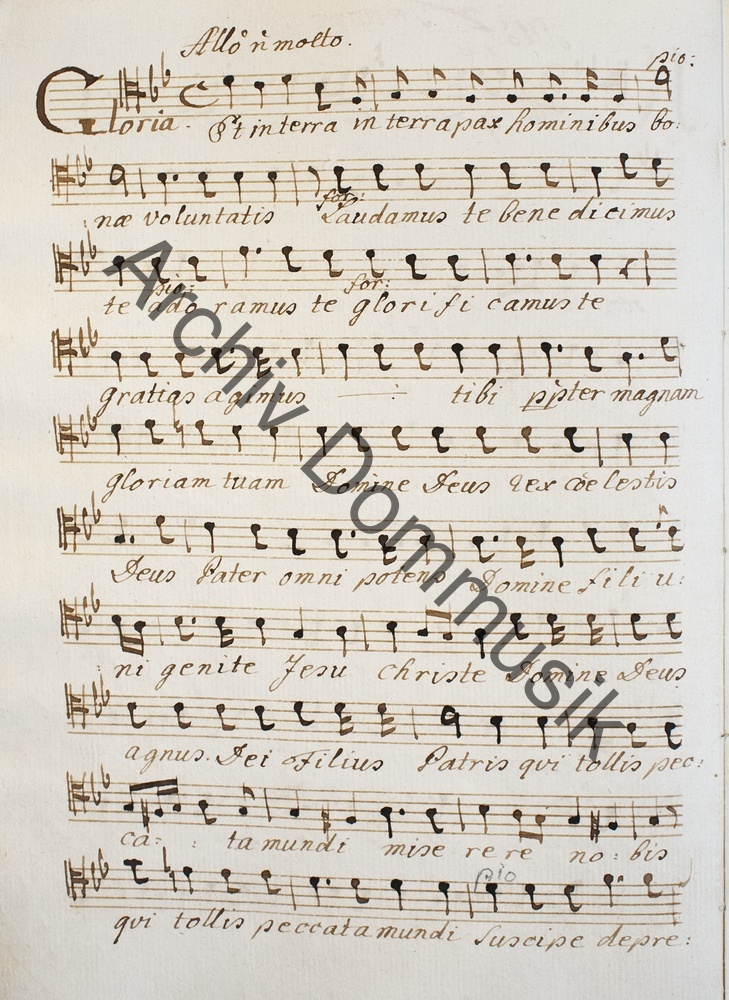 Allo n molto.
pio:
Gloria. Et in terra in terra pax hominibus bo:
næ voluntatis Laudamus te bene dicimus
for:
te ado ramus te glori fi camus te
pio: for:
gratias agimus tibi ppter magnam
gloriam tuam Domine Deus Rex cœlestis
Deus Pater omni potens Domine fili u:
ni genite Jesu Christe Domine Deus
agnus Dei Filius Patris qui tollis pec:
ca: : ta mundi mise re re no: bis
pio
qui tollis peccata mundi Suscipe depre:
Archiv Dommusik